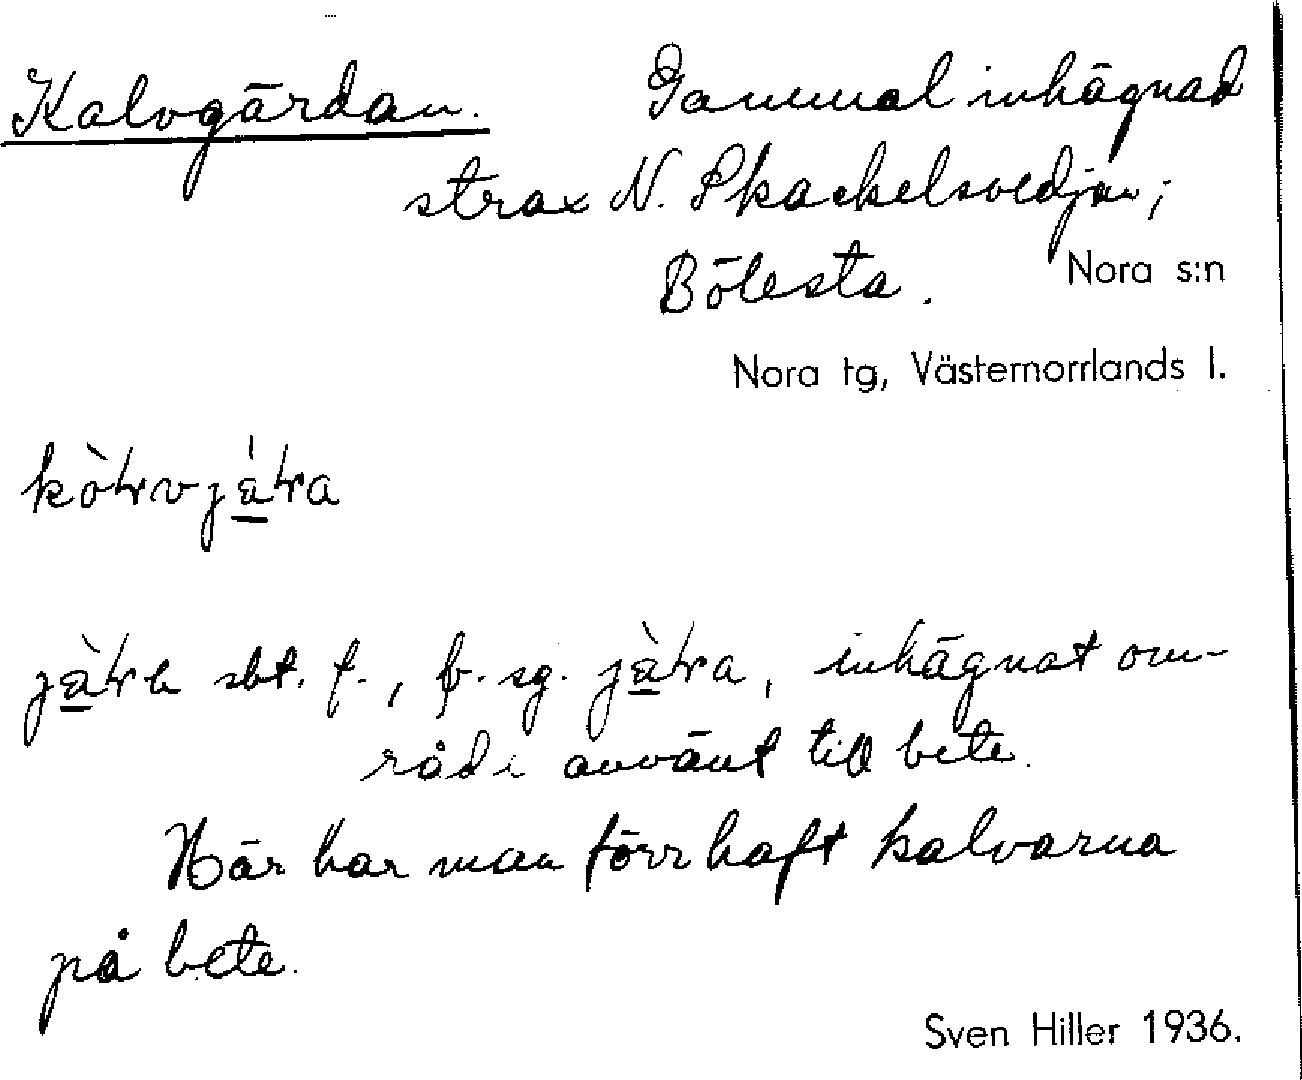 Kalvgärdan. Gammal inhägnad
strax N. Skackelsvedjan;
Bölesta. Nora s:n
Nora tg, Västernorrlands l.
sbt. f., b. sg. , inhägnat om-
råde använt till bete.
Här har man förr haft kalvarna
på bete.
Sven Hiller 1936.